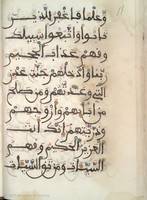 وعلما فاغفر للذين
تابوا واتبعوا سبيلك
وقهم عذاب الجحيم
ربنا وأدخلهم جنت عدن
التي وعدتهم ومن صلح
من ءابائهم وأزوجهم و
ذريتهم إنك أنت
العزيز الحكيم وقهم
السيئات ومن تق السيئات